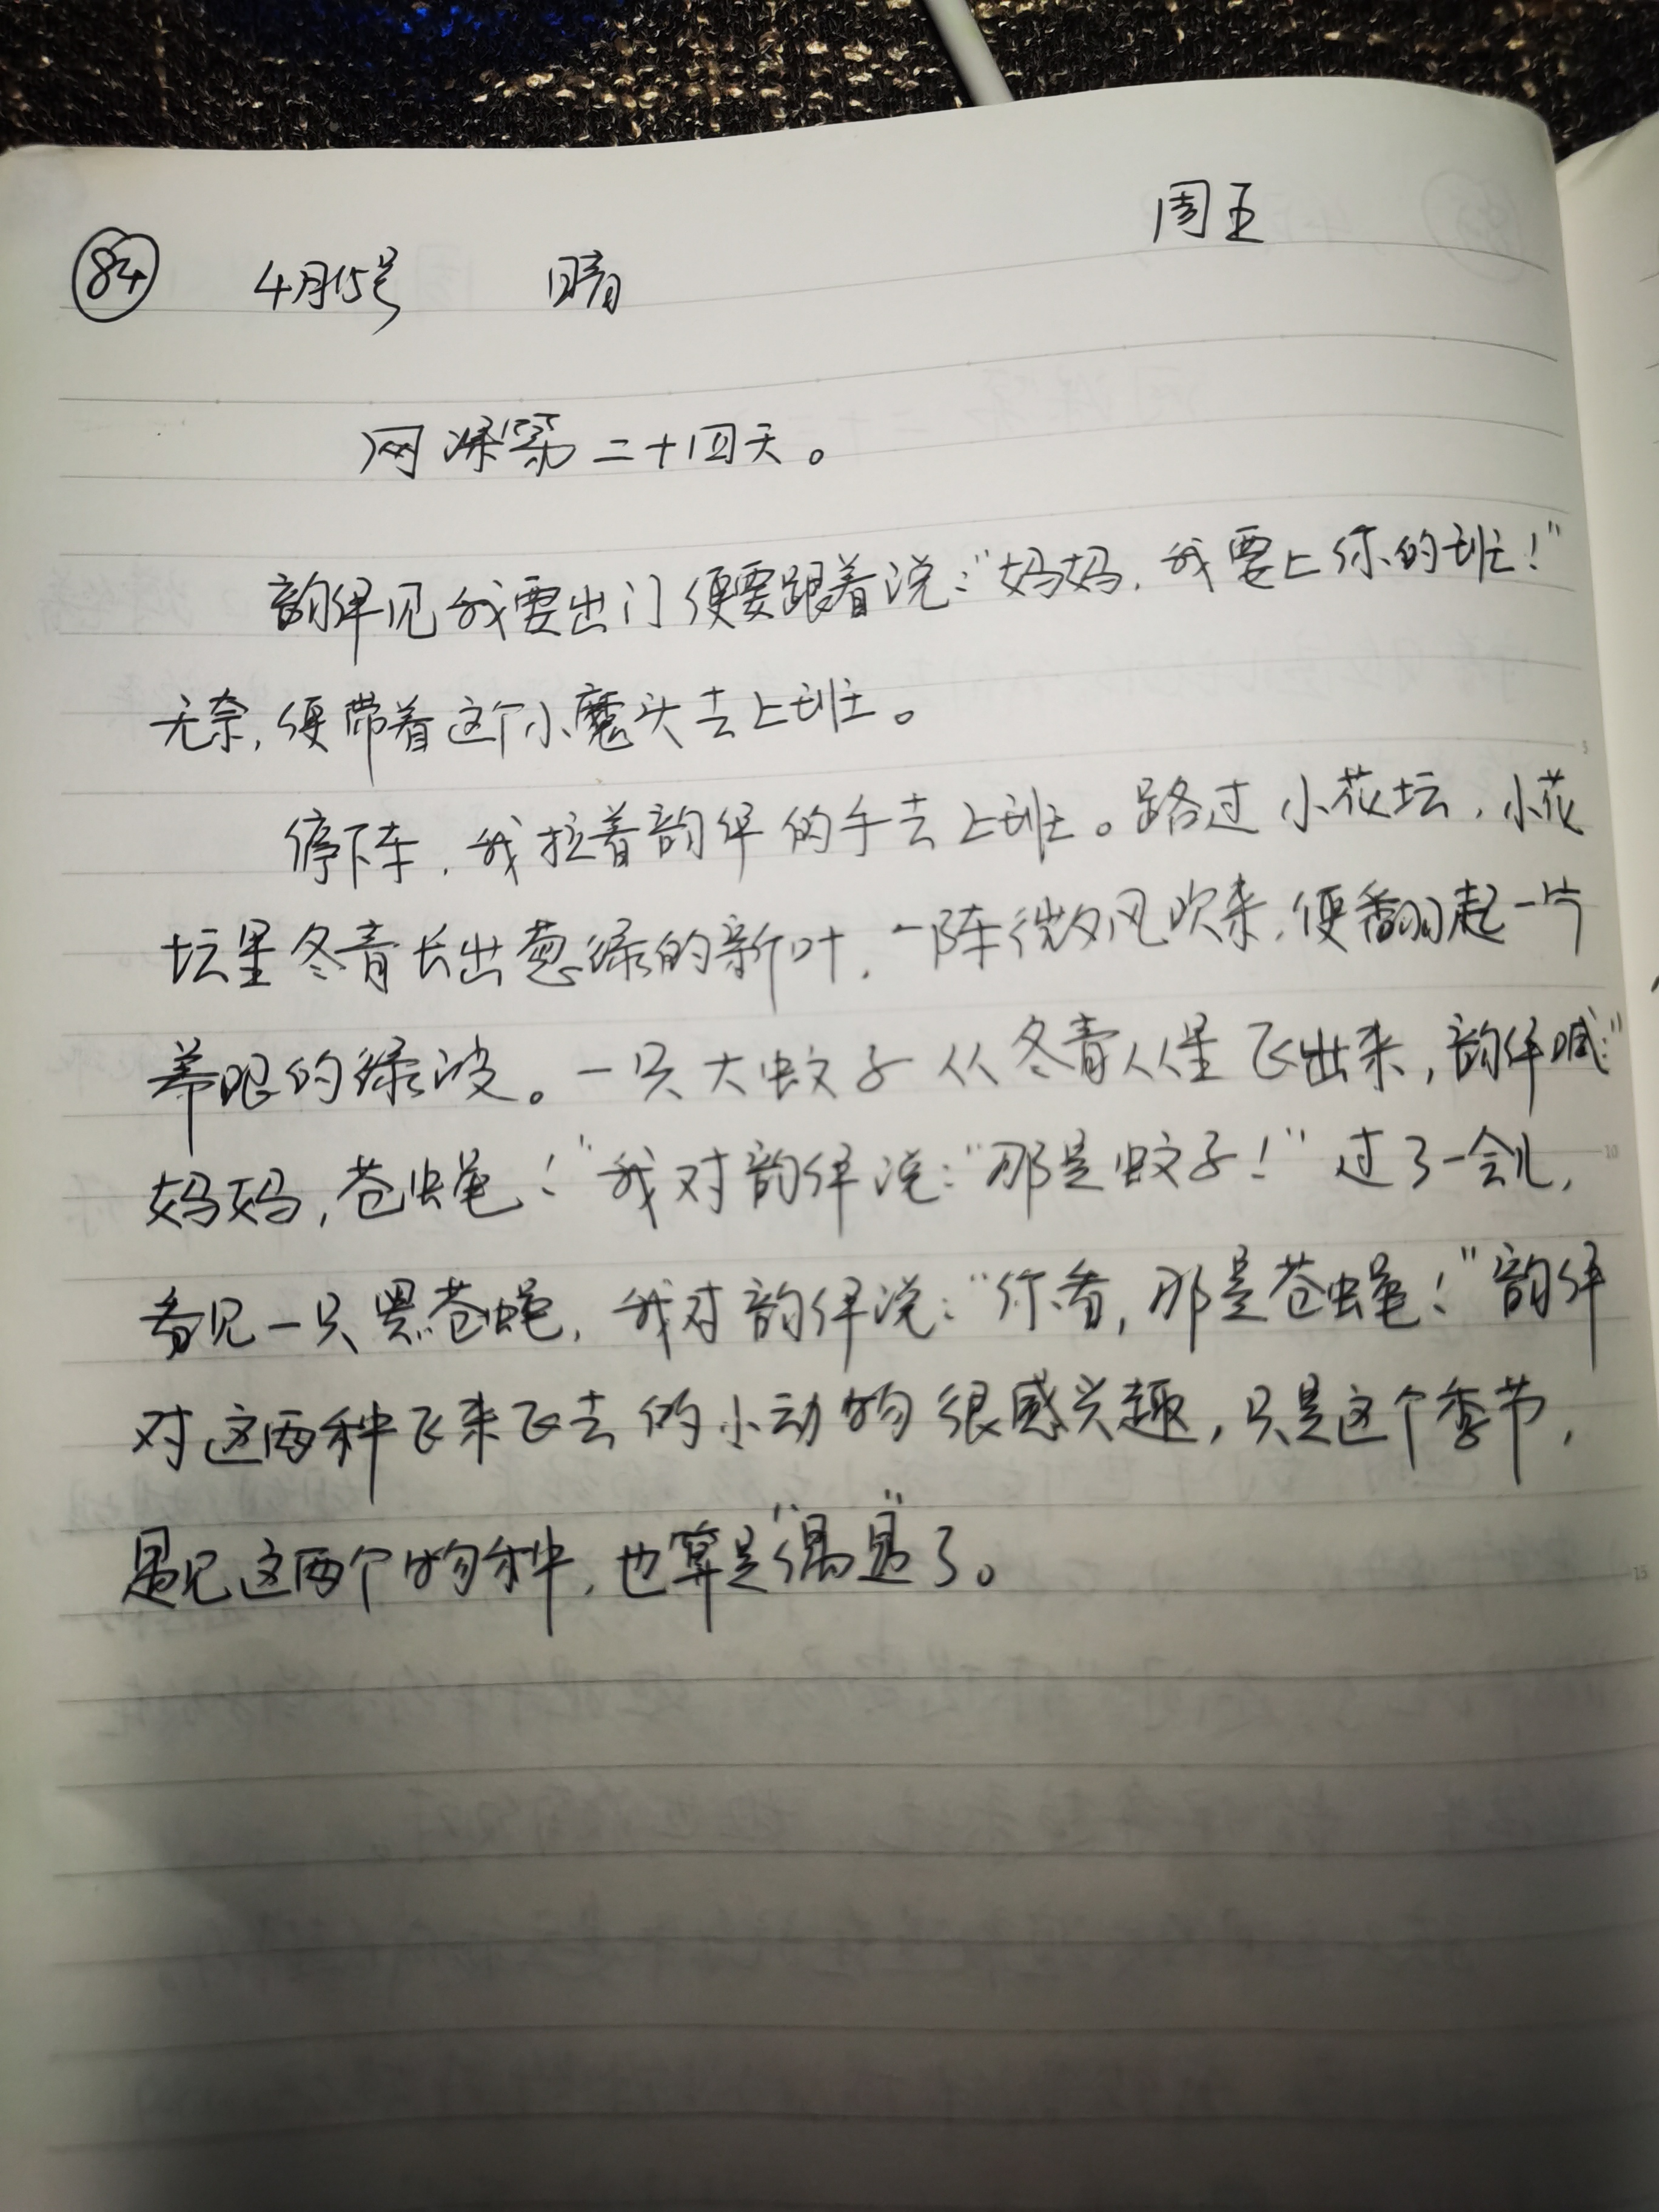 周五
84 4月15号 晴
网课第二十四天。
韵伴见我要出门便要跟着说:"妈妈,我要上你的班!"
无奈,便带着这个小魔头去上班。
停下车,我拉着韵伴的手去上班。路过小花坛,小花
坛里冬青长出葱绿的新叶,一阵微风吹来,便翻起一片
养眼的绿波。一只大蚊子从冬青丛里飞出来,韵伴喊:"
妈妈,苍蝇!"我对韵伴说:"那是蚊子!"过了一会儿,
看见一只黑苍蝇,我对韵伴说:"你看,那是苍蝇!"韵伴
对这两种飞来飞去的小动物很感兴趣,只是这个季节,
遇见这两个物种,也算是"偶遇"了。